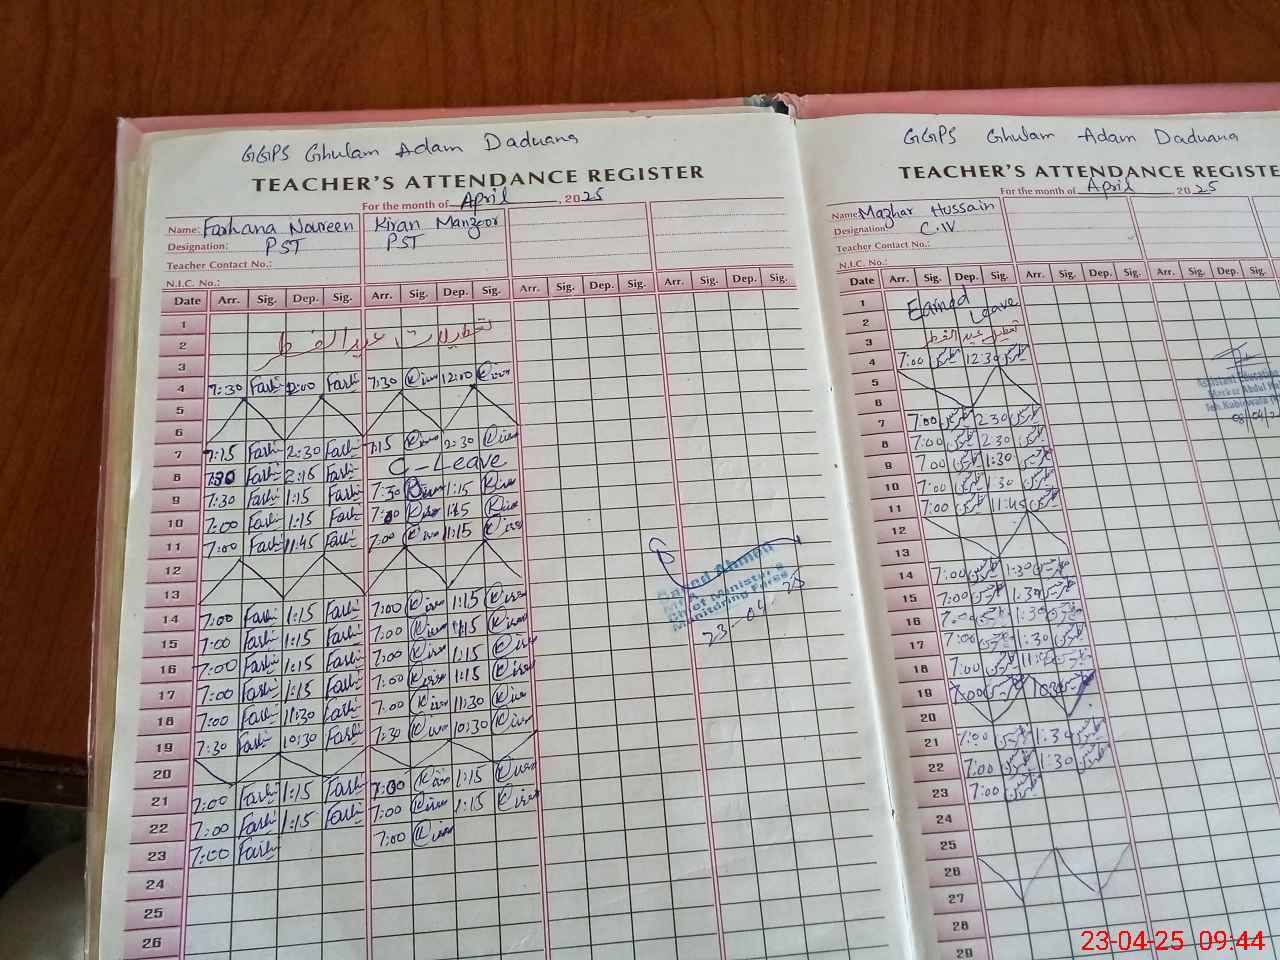 GGPS Ghulam Adam Daduana
TEACHER'S ATTENDANCE REGISTER
For the month of April, 2025
Name: Farhana Noureen Kiran Manzoor
Designation: PST PST
Teacher Contact No.:
N.I.C. No.:
Date Arr. Sig. Dep. Sig. Arr. Sig. Dep. Sig. Arr. Sig. Dep. Sig. Arr. Sig. Dep. Sig.
1
2 تعطیلات عید الفطر
3
4 7:30 Farh 12:00 Farh 7:30 Kiran 12:00 Kiran
5
6
7 7:15 Farh 2:30 Farh 7:15 Kiran 2:30 Kiran
8 7:30 Farh 2:15 Farh C-Leave
9 7:30 Farh 1:15 Farh 7:30 Kiran 1:15 Kiran
10 7:00 Farh 1:15 Farh 7:00 Kiran 1:15 Kiran
11 7:00 Farh 11:45 Farh 7:00 Kiran 11:15 Kiran
12
13
14 7:00 Farh 1:15 Farh 7:00 Kiran 1:15 Kiran
15 7:00 Farh 1:15 Farh 7:00 Kiran 1:15 Kiran
16 7:00 Farh 1:15 Farh 7:00 Kiran 1:15 Kiran
17 7:00 Farh 1:15 Farh 7:00 Kiran 1:15 Kiran
18 7:00 Farh 11:30 Farh 7:00 Kiran 11:30 Kiran
19 7:30 Farh 10:30 Farh 7:30 Kiran 10:30 Kiran
20
21 7:00 Farh 1:15 Farh 7:00 Kiran 1:15 Kiran
22 7:00 Farh 1:15 Farh 7:00 Kiran 1:15 Kiran
23 7:00 Farh 7:00 Kiran
24
25
26
Ahmed
Chief Minister's
Monitoring Force
23-04-25
GGPS Ghulam Adam Daduana
TEACHER'S ATTENDANCE REGISTE
For the month of April, 2025
Name: Mazhar Hussain
Designation: C.IV
Teacher Contact No.:
N.I.C. No.:
Date Arr. Sig. Dep. Sig. Arr. Sig. Dep. Sig. Arr. Sig. Dep. Sig.
1 Earned
2 Leave
3 تعطیل عید الفطر
4 7:00 12:30
5
6
7 7:00 2:30
8 7:00 2:30
9 7:00 1:30
10 7:00 1:30
11 7:00 11:45
12
13
14 7:00 1:30
15 7:00 1:30
16 7:00 1:30
17 7:00 1:30
18 7:00
19 7:00 10:30
20
21 7:00 1:30
22 7:00 1:30
23 7:00
24
25
26
27
28
29
Assistant Education
Markaz Abdul
Teh. Kabirwala
08/04/2
23-04-25 09:44